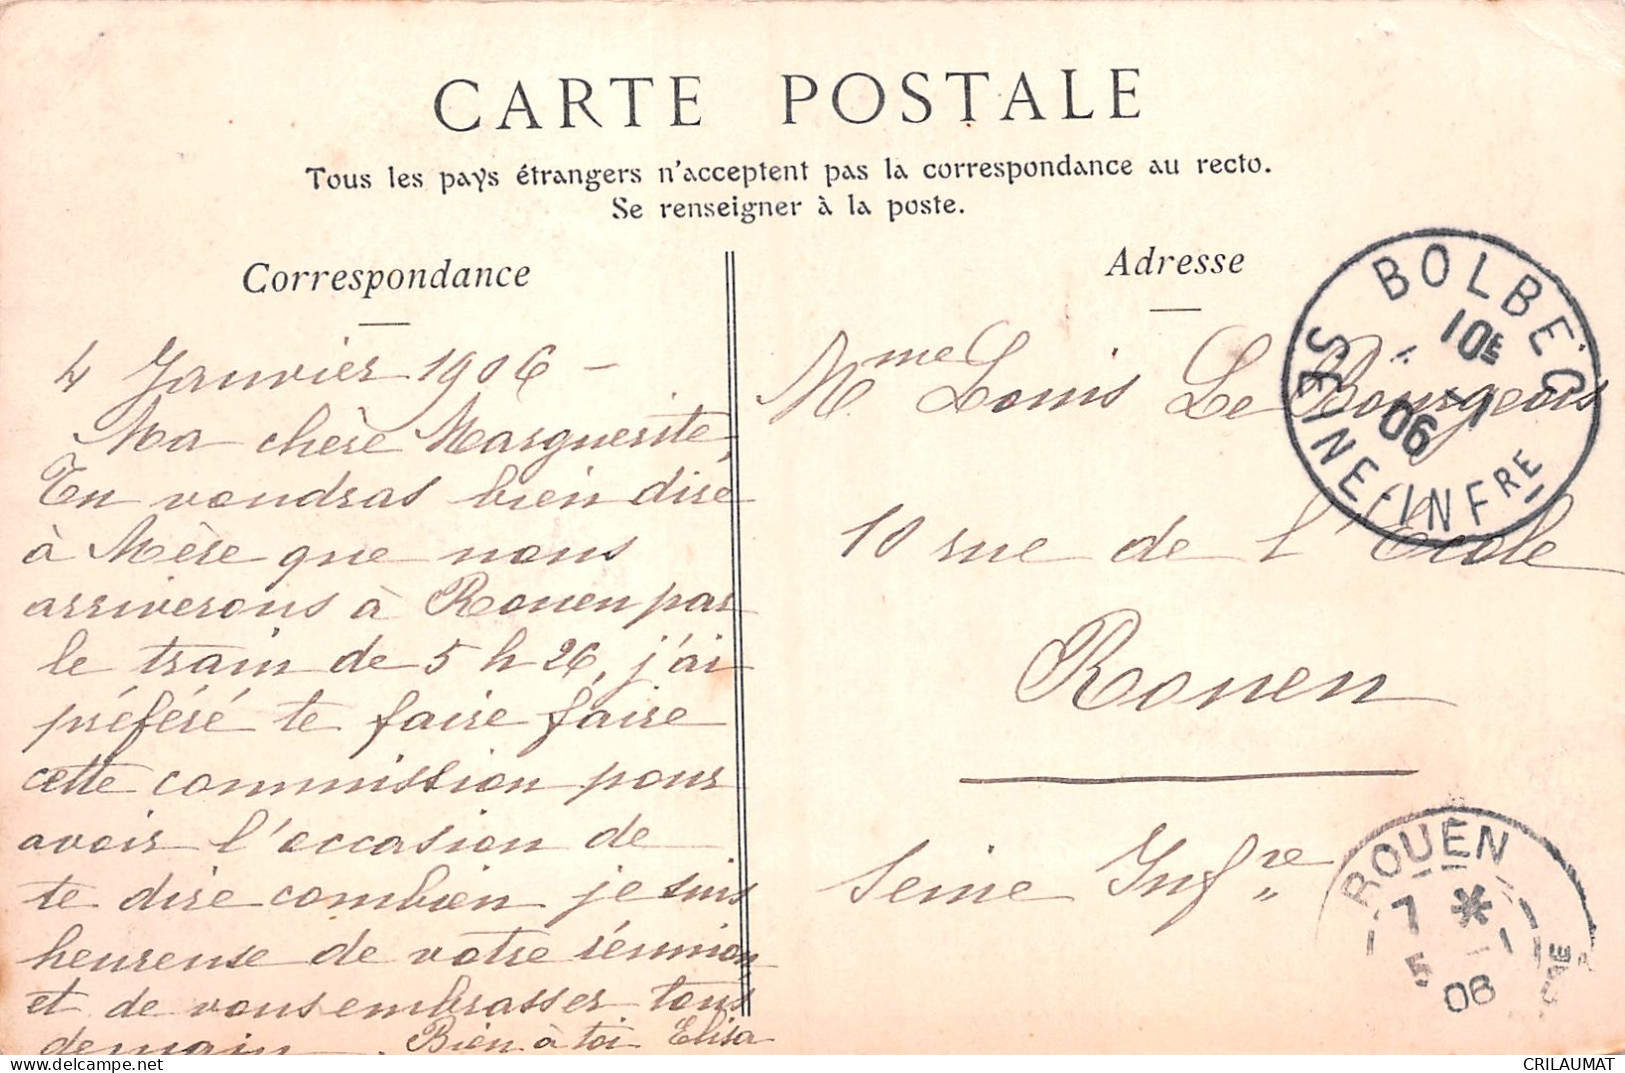 CARTE POSTALE
Tous les pays étrangers n'acceptent pas la correspondance au recto.
Se renseigner à la poste.
Correspondance
4 Janvier 1906 -
Ma chère Marguerite,
Tu voudras bien dire
à Mère que nous
arriverons à Rouen par
le train de 5 h 26, j'ai
préféré te faire faire
cette commission pour
avoir l'occasion de
te dire combien je suis
heureuse de votre réunion
et de vous embrasser tous
demain. Bien à toi Elisa
Adresse
Mme Louis Le Bourgeois
10 rue de l'Ecole
Rouen
Seine Infre
BOLBEC
10E
4 -1
06
SEINE-INFRE
ROUEN
7 *
5 -1
06
CRILAUMAT